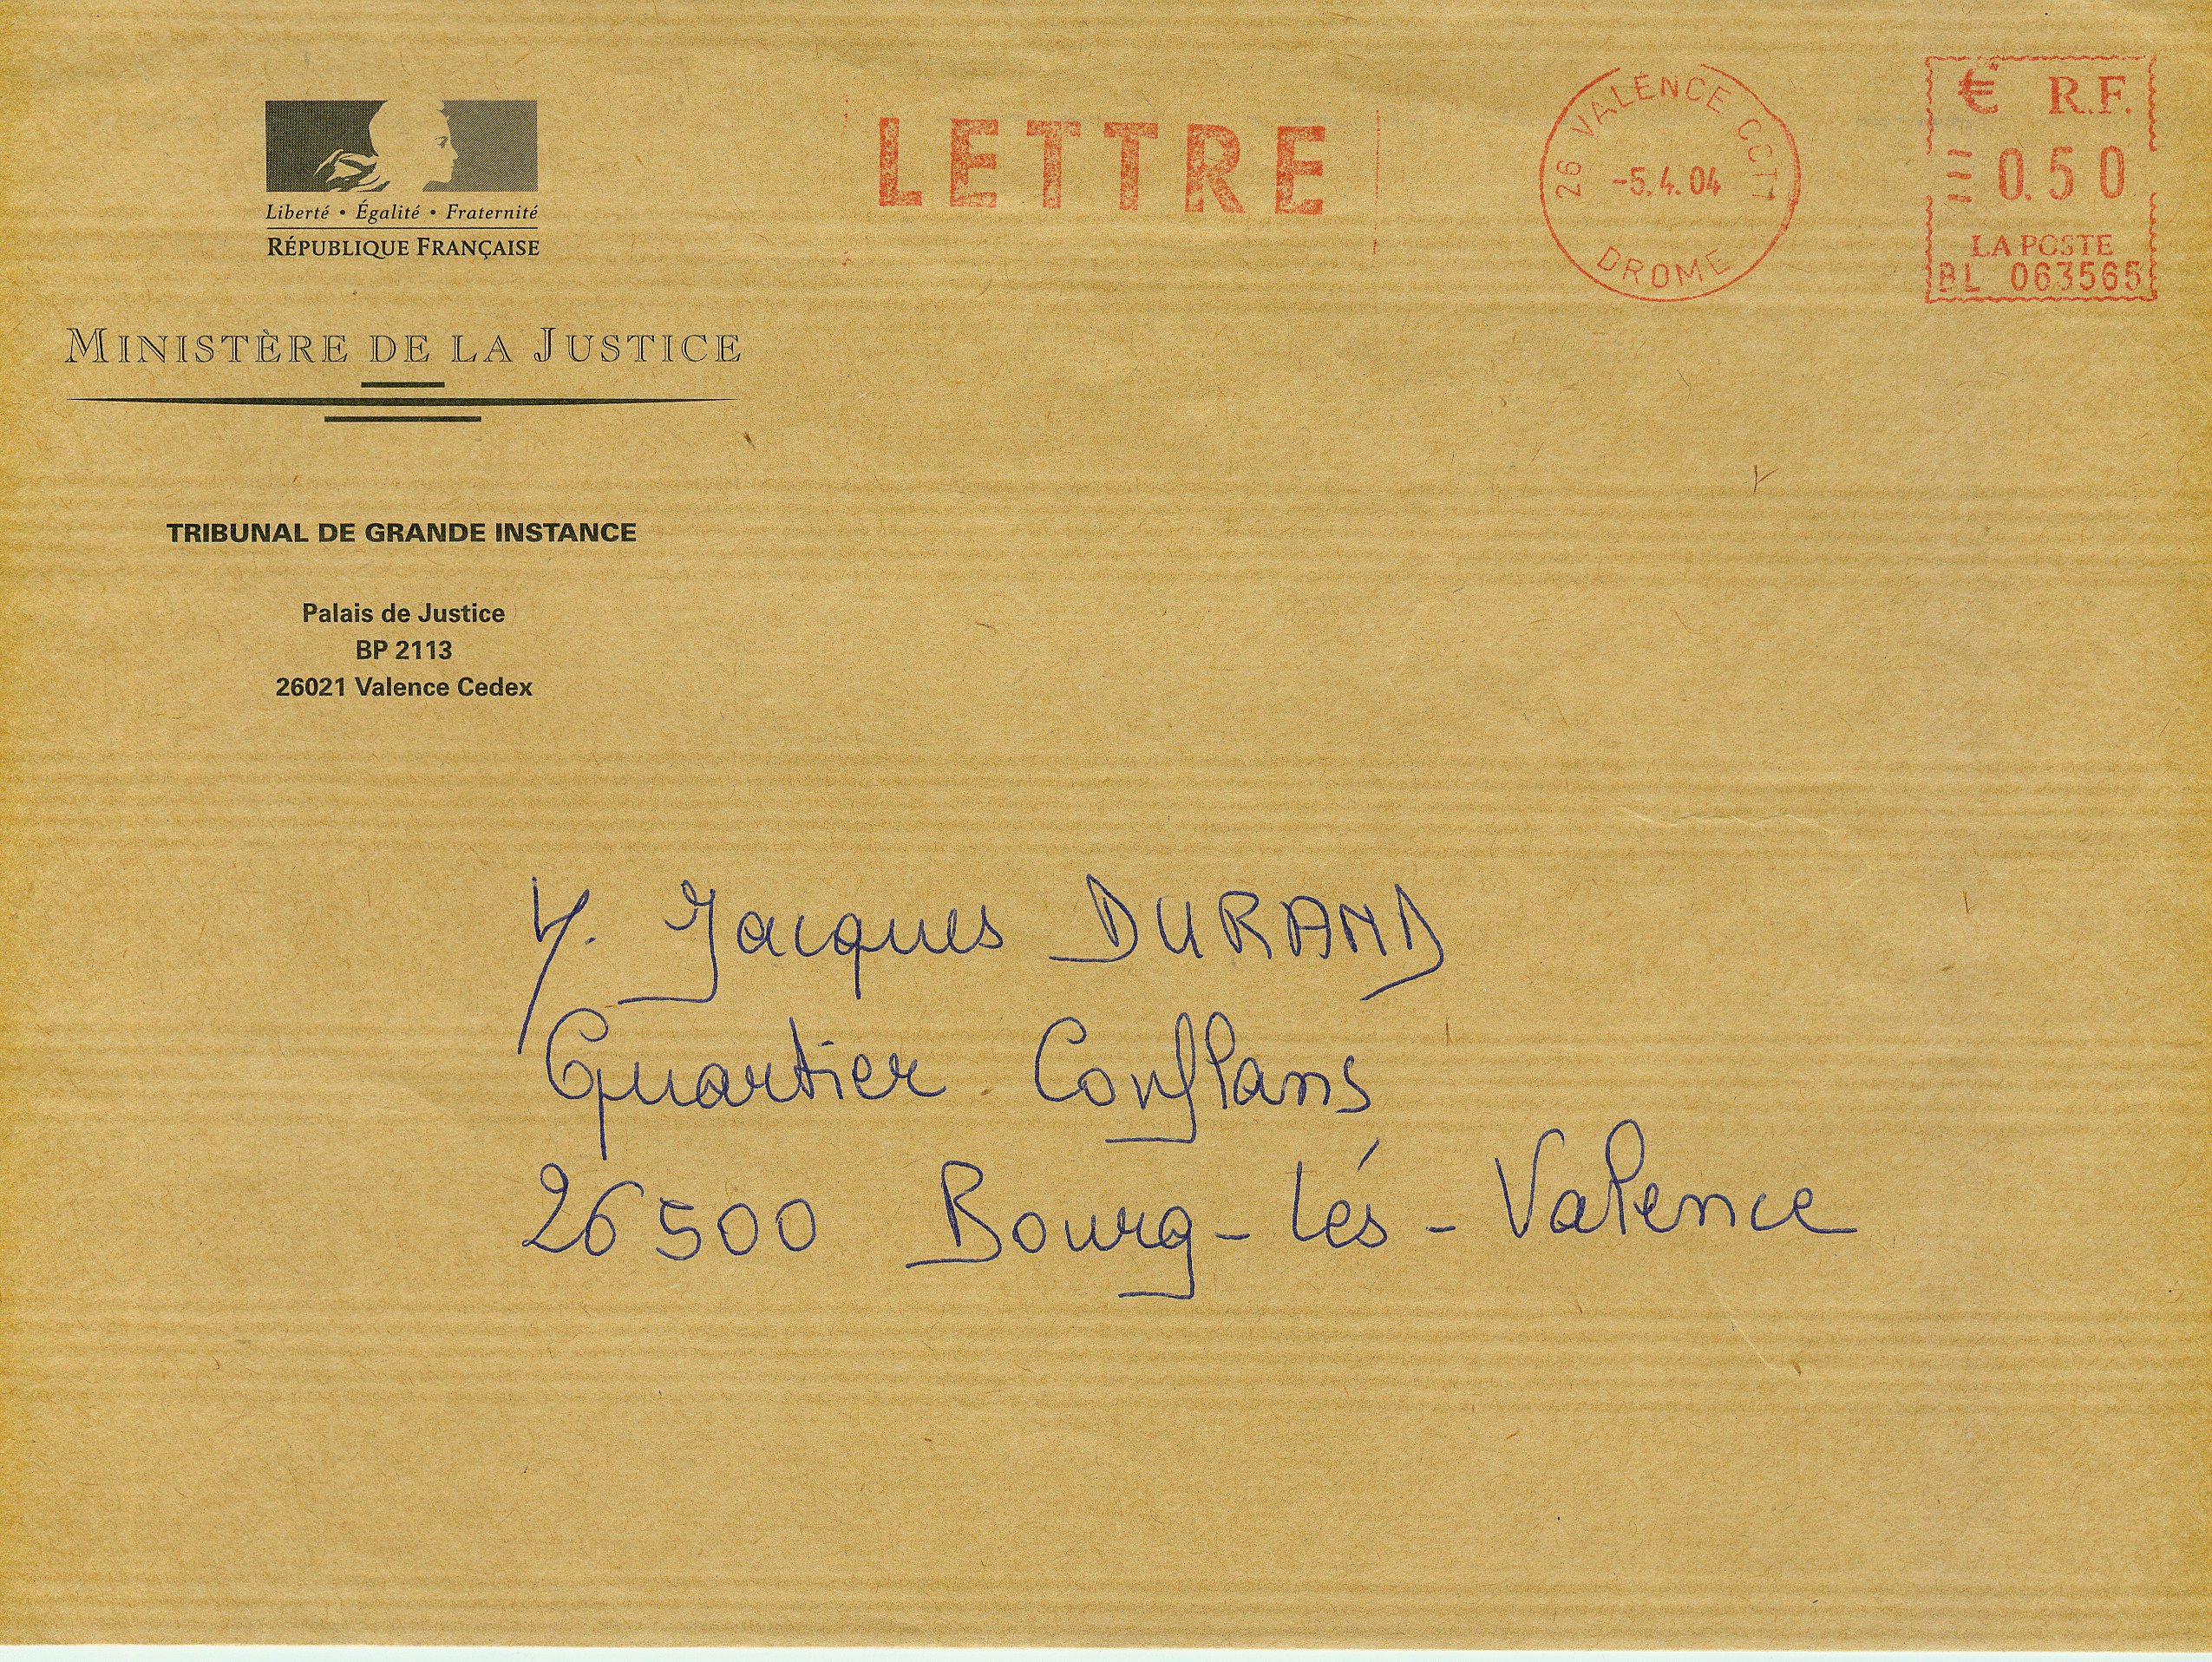 Liberté • Égalité • Fraternité
RÉPUBLIQUE FRANÇAISE
MINISTÈRE DE LA JUSTICE
TRIBUNAL DE GRANDE INSTANCE
Palais de Justice
BP 2113
26021 Valence Cedex
LETTRE
26 VALENCE CCT1
-5.4.04
DROME
€ R.F.
0.50
LA POSTE
BL 063565
M. Jacques DURAND
Quartier Conflans
26500 Bourg-lés-Valence